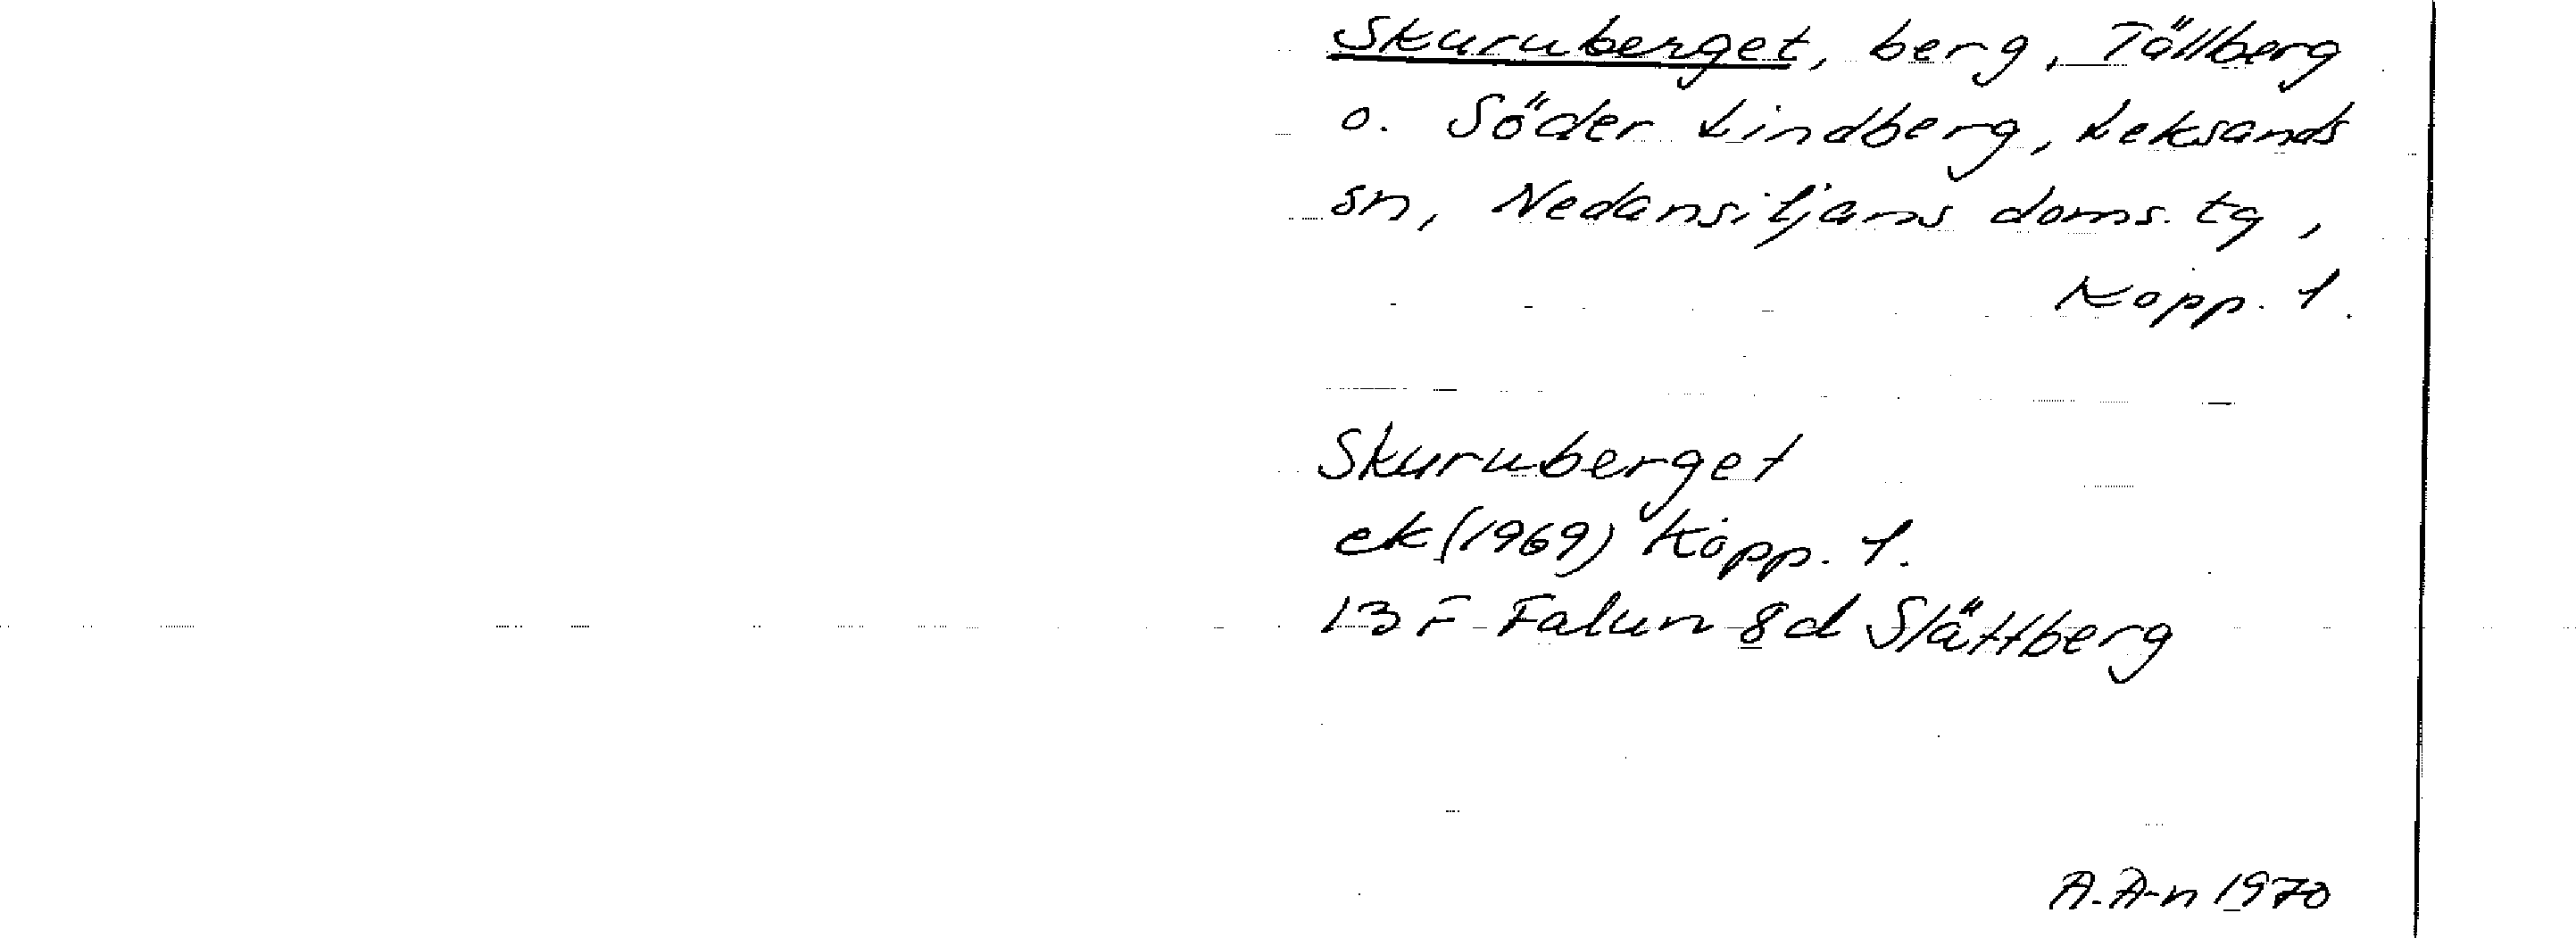 Skuruberget, berg, Tällberg
o. Söder Lindberg, Leksands
sn, Nedansiljans doms. tg,
Kopp. l.
Skuruberget
ek (1969) Kopp. l.
13 F Falun 8d Slättberg
A. A-n 1970